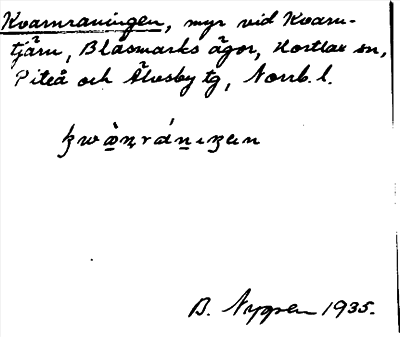 Kvarnraningen, myr vid Kvarn-
tjärn, Blåsmarks ägor, Hortlax sn,
Piteå och Älvsby tg, Norrb. l.
B. Nygren 1935.